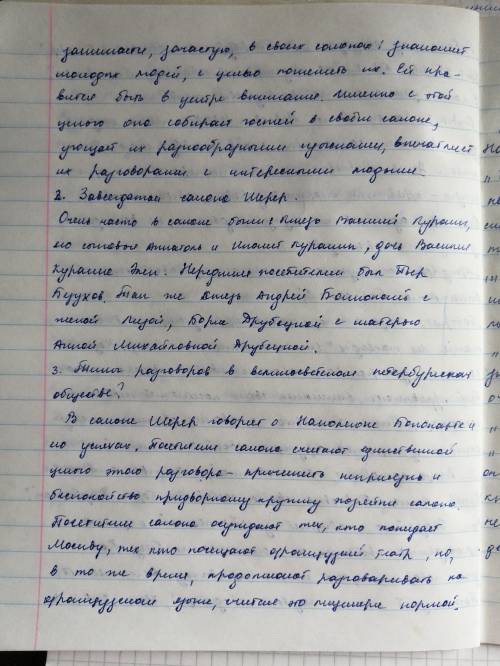 заниматься, зачастую, в своих салонах: знакомит
молодых людей, с целью поженить их. Ей нра-
вится быть в центре внимания. Именно с этой
целью она собирает гостей в своём салоне,
угощает их разнообразными
их разговорами с интересными людьми.
2. Завсегдатаи салона Шерер.
Очень часто в салоне были: Князь Василий Курагин,
его сыновья Анатоль и Ипполит Курагины, дочь Василия
Курагина Элен. Нередким посетителем был Пьер
Безухов. Так же Князь Андрей Болконский с
женой Лизой, Борис Друбецкой с матерью
Анной Михайловной Друбецкой.
3. разговоров в великосветском петербургском
обществе?
В салоне Шерер говорят о Наполеоне Бонапарте и
его успехах. Посетители салона считают единственной
целью этого разговора - причинить неприязнь и
беспокойство придворному кружку хозяйки салона.
Посетители салона осуждают тех, кто покидает
Москву, тех кто посещают французский театр, но,
в то же время, продолжают разговаривать на
французском языке, считая это нормой.